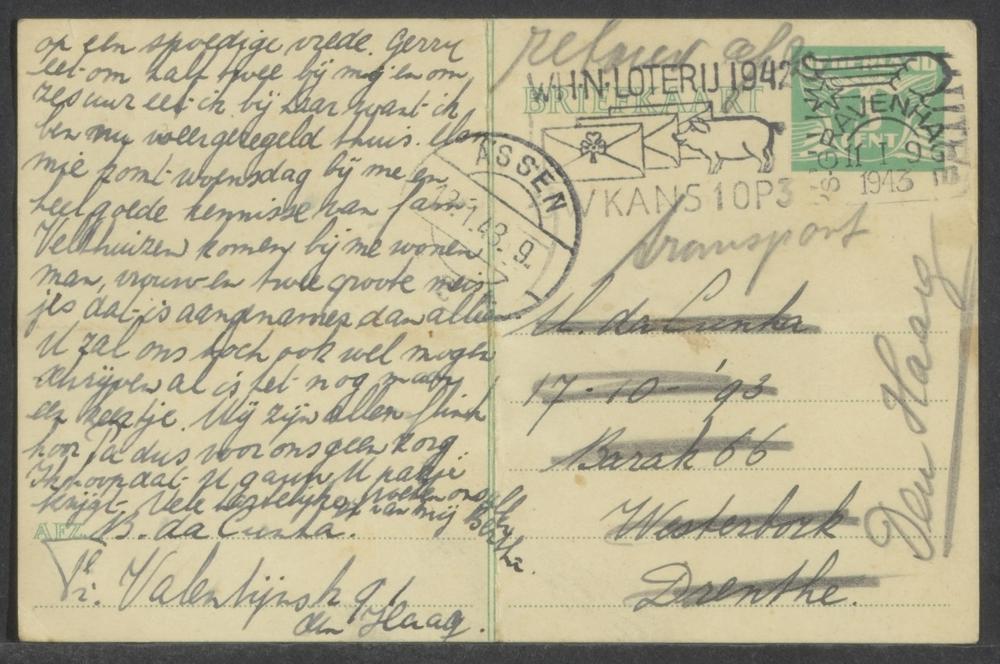 op een spoedige vrede. Gerry
eet om half twee bij mij en om
zes uur eet ik bij haar want ik
ben nu weer geregeld thuis.
mie komt woensdag bij me en
heel goede kennisse van fam.
Velthuizen komen bij me wonen
man, vrouw en twee groote meis
jes dat is aangenamer dan alleen
U zal ons toch ook wel mogen
schrijven al is het nog maar
een keertje. Wij zijn allen flink
hoor Pa dus voor ons geen zorg
Ik hoop dat U gauw U pakje
krijgt. Vele van mij
Bertha.
AFZ. B. da Cunha.
1e v.d. Valentijnstr 91
den Haag.
retour afz
transport
BRIEFKAART
W.H.N. LOTERIJ 1942
KANS 1 OP 3
'S-GRAVENHAGE
11 I 9
1943
CENT
ASSEN
12.1.43.9
M. da Cunha
17-10-'93
Barak 66
Westerbork
Drenthe.
Den Haag